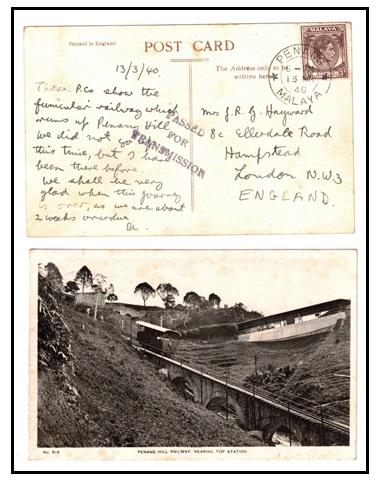 Printed in England
POST CARD
The Address only to be
written here.
13/3/40.
These P.Co show the
funicular railway which
runs up Penang Hill.
We did not go up
this time, but I have
been there before.
We shall be very
glad when this journey
is over, as we are about
2 weeks overdue
PASSED
FOR
TRANSMISSION
PENANG
13
40
MALAYA
MALAYA
Mrs J. R. G. Hayward
8c Ellerdale Road
Hampstead
London N.W3
ENGLAND.
No. 514
PENANG HILL RAILWAY, NEARING TOP STATION